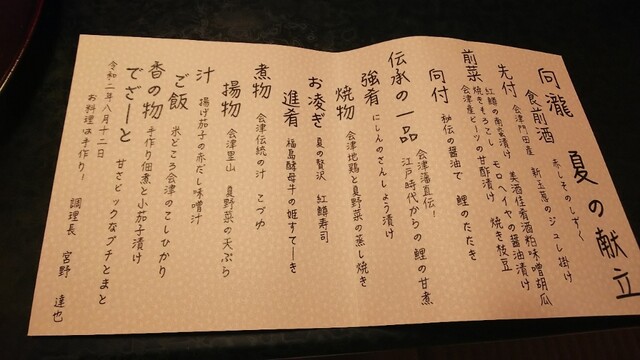 向瀧 夏の献立
食前酒 赤しそのしずく
先付 会津門田産 新玉葱のジュレ掛け
前菜 紅鱒の南蛮漬け 美酒佳肴酒粕味噌胡瓜
焼きそろこし モロヘイヤの醤油漬け
会津産ビーツの甘酢漬け 焼き枝豆
向付 秘伝の醤油で 鯉のたたき
伝承の一品 会津藩直伝!
江戸時代からの鯉の甘煮
強肴 にしんのさんしょう漬け
焼物 会津地鶏と夏野菜の蒸し焼き
お凌ぎ 夏の贅沢 紅鱒寿司
進肴 福島酵母牛の姫すてーき
煮物 会津伝統の汁 こづゆ
揚物 会津里山 夏野菜の天ぷら
汁 揚げ茄子の赤だし味噌汁
ご飯 米どころ会津のこしひかり
香の物 手作り佃煮と小茄子漬け
でざーと 甘さビックなプチとまと
令和二年八月十二日
お料理は手作り!
調理長 宮野 達也